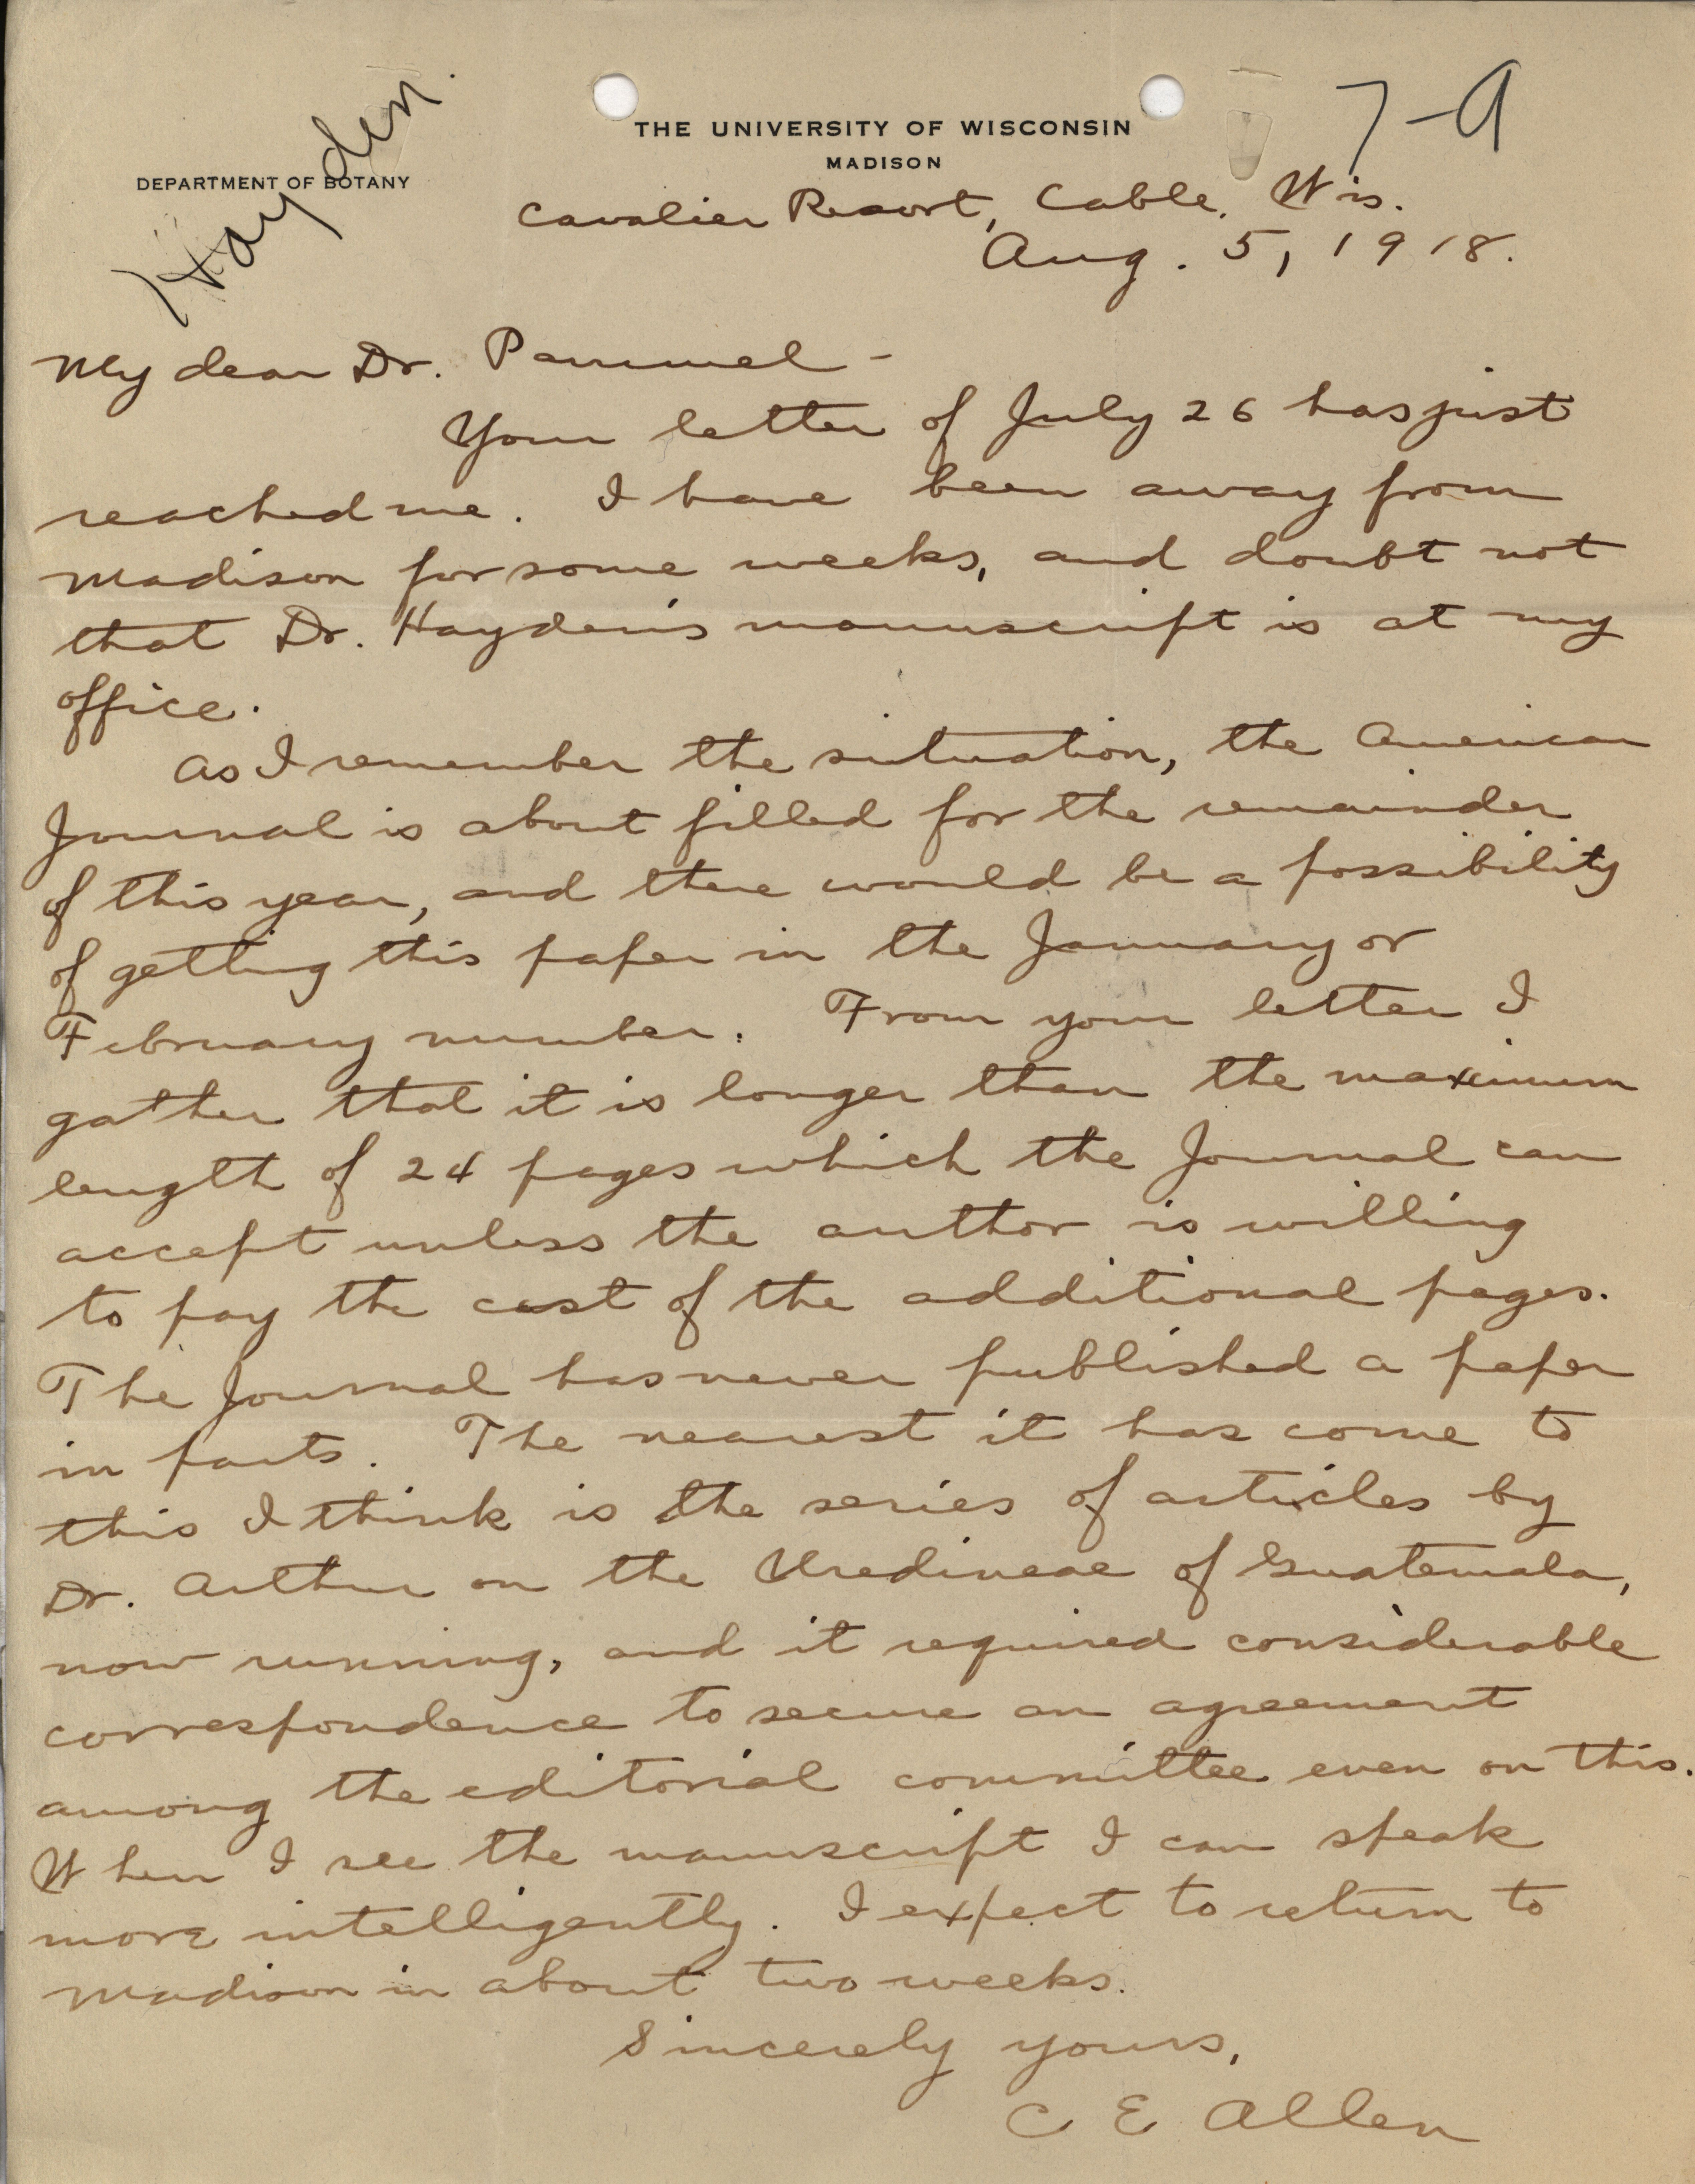 Hayden.
7-9
THE UNIVERSITY OF WISCONSIN
MADISON
DEPARTMENT OF BOTANY
Cavalier Resort, Cable, Wis.
Aug. 5, 1918.
My dear Dr. Pammel -
Your letter of July 26 has just
reached me. I have been away from
Madison for some weeks, and doubt not
that Dr. Hayden's manuscript is at my
office.
As I remember the situation, the American
Journal is about filled for the remainder
of this year, and there would be a possibility
of getting this paper in the January or
February number. From your letter I
gather that it is longer than the maximum
length of 24 pages which the Journal can
accept unless the author is willing
to pay the cost of the additional pages.
The Journal has never published a paper
in parts. The nearest it has come to
this I think is the series of articles by
Dr. Arthur on the Uredineae of Guatemala,
now running, and it required considerable
correspondence to secure an agreement
among the editorial committee even on this.
When I see the manuscript I can speak
more intelligently. I expect to return to
Madison in about two weeks.
Sincerely yours,
C E Allen